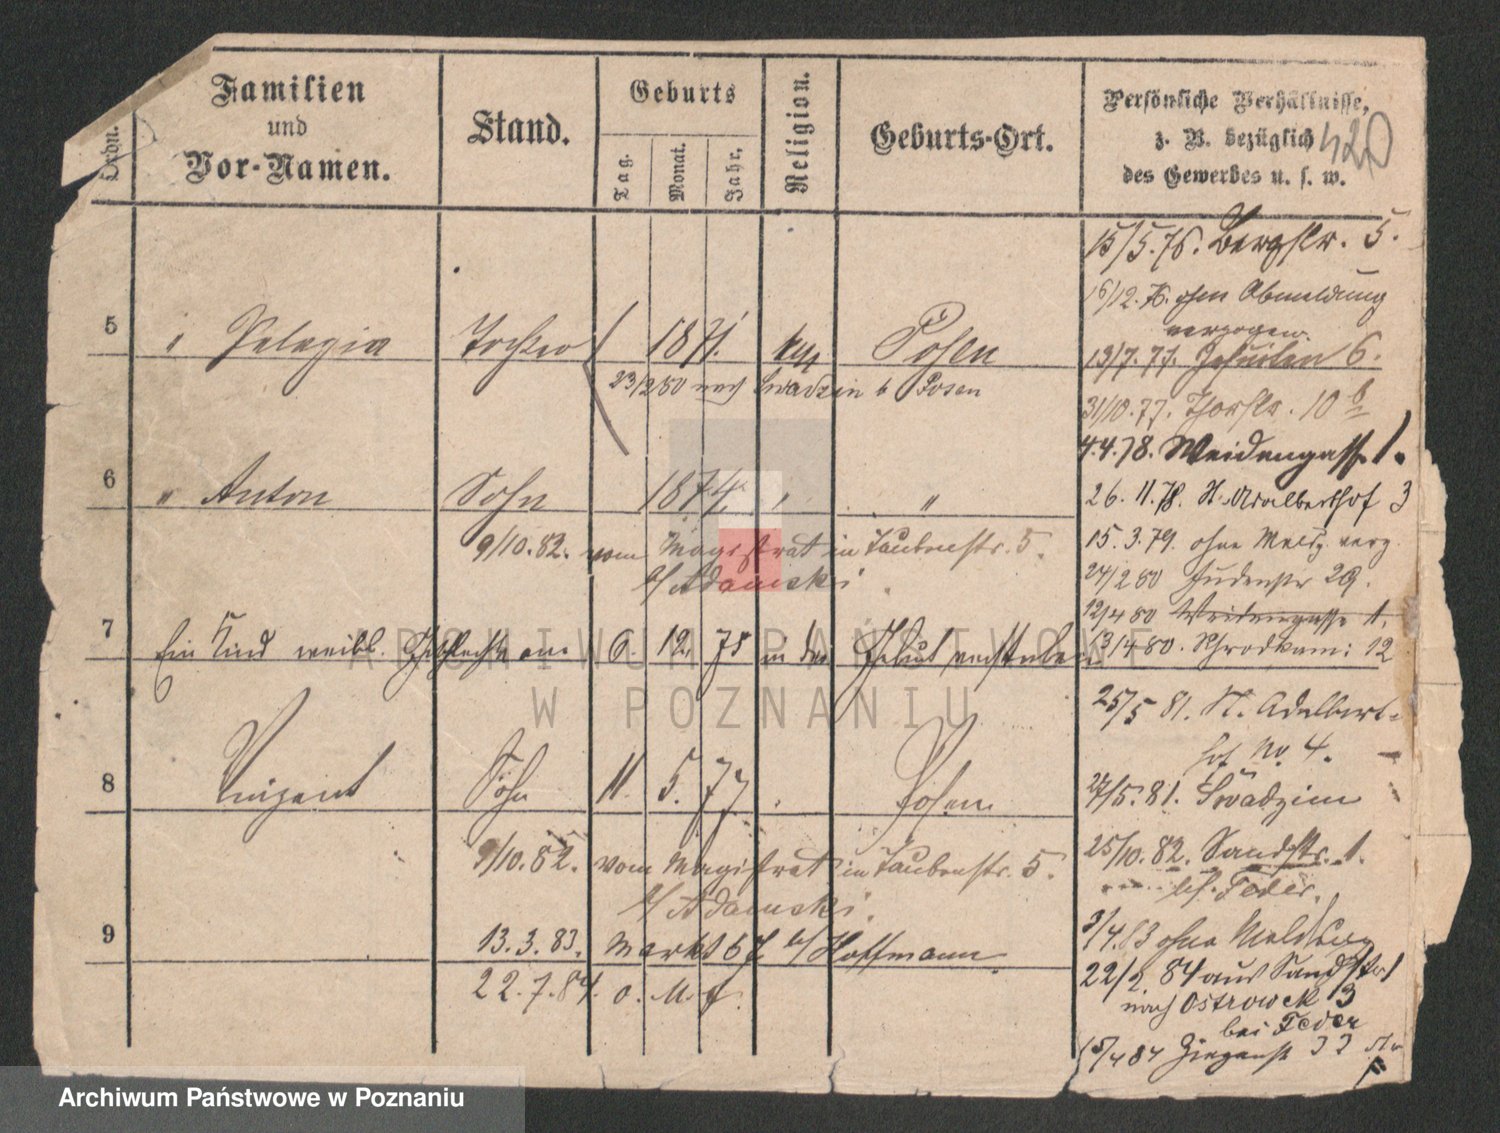 Ordn.
Familien
und
Vor-Namen.
Stand.
Geburts
Tag.
Monat.
Jahr.
Religion.
Geburts-Ort.
Persönliche Verhältnisse,
z. B. bezüglich
des Gewerbes u. s. w.
420
15/5. 76. Bergstr. 5.
16/12. 76. ohne Abmeldung
verzogen.
5 " Pelagia Tochter 1871. kath Posen
13/7. 77. Jesuiten 6.
23/2 80 nach Swadzin b Posen
31/10. 77. Thorstr. 10 b
4.4.78. Weidengasse 1.
6 " Anton Sohn 1874. " "
26. 11. 78. St. Adalberthof 3
9/10. 82. vom Magistrat in Taubenstr. 5.
b/ Adamski
15. 3. 79. ohne Meldg verz.
24/2 80 Judenstr 29.
12/4 80 Weidengasse 1.
7 Ein Kind weibl. Geschlechts am 6. 12. 78 in der Geburt verstorben
13/4 80. Schrodkam: 12
25/5 81. St. Adalbert-
hof No. 4.
8 Vinzent Sohn 11. 5. 77 Posen
27/5. 81. Swadzim
9/10. 82. vom Magistrat in Taubenstr. 5.
b/ Adamski.
25/10. 82. Sandstr. 1.
bei Feder.
9
13. 3. 83. Markt 67 b/ Hoffmann
3/4. 83 ohne Meldung
22. 7. 84. o. M. f
22/2. 84 aus Sandstr 1
nach Ostrowek 13
bei Feder
15/4 84 Ziegenstr 22
ARCHIWUM PAŃSTWOWE
W POZNANIU
Archiwum Państwowe w Poznaniu